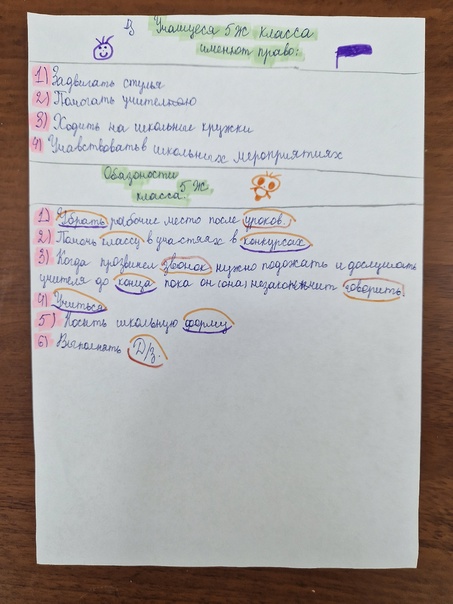 Учащиеся 5Ж класса
имеют право:
1) Задвигать стулья
2) Помогать учителю
3) Ходить на школьные кружки
4) Учавствовать в школьных мероприятиях
Обязоности
класса 5Ж
1) Убрать рабочие место после уроков.
2) Помочь классу в участиях в конкурсах
3) Когда прозвинел звонок нужно подожать и дослушать
учителя до конца пока он (она) незаконжчит говорить)
4) Учиться
5) Носить школьную форму
6) Выполнять Д/з.